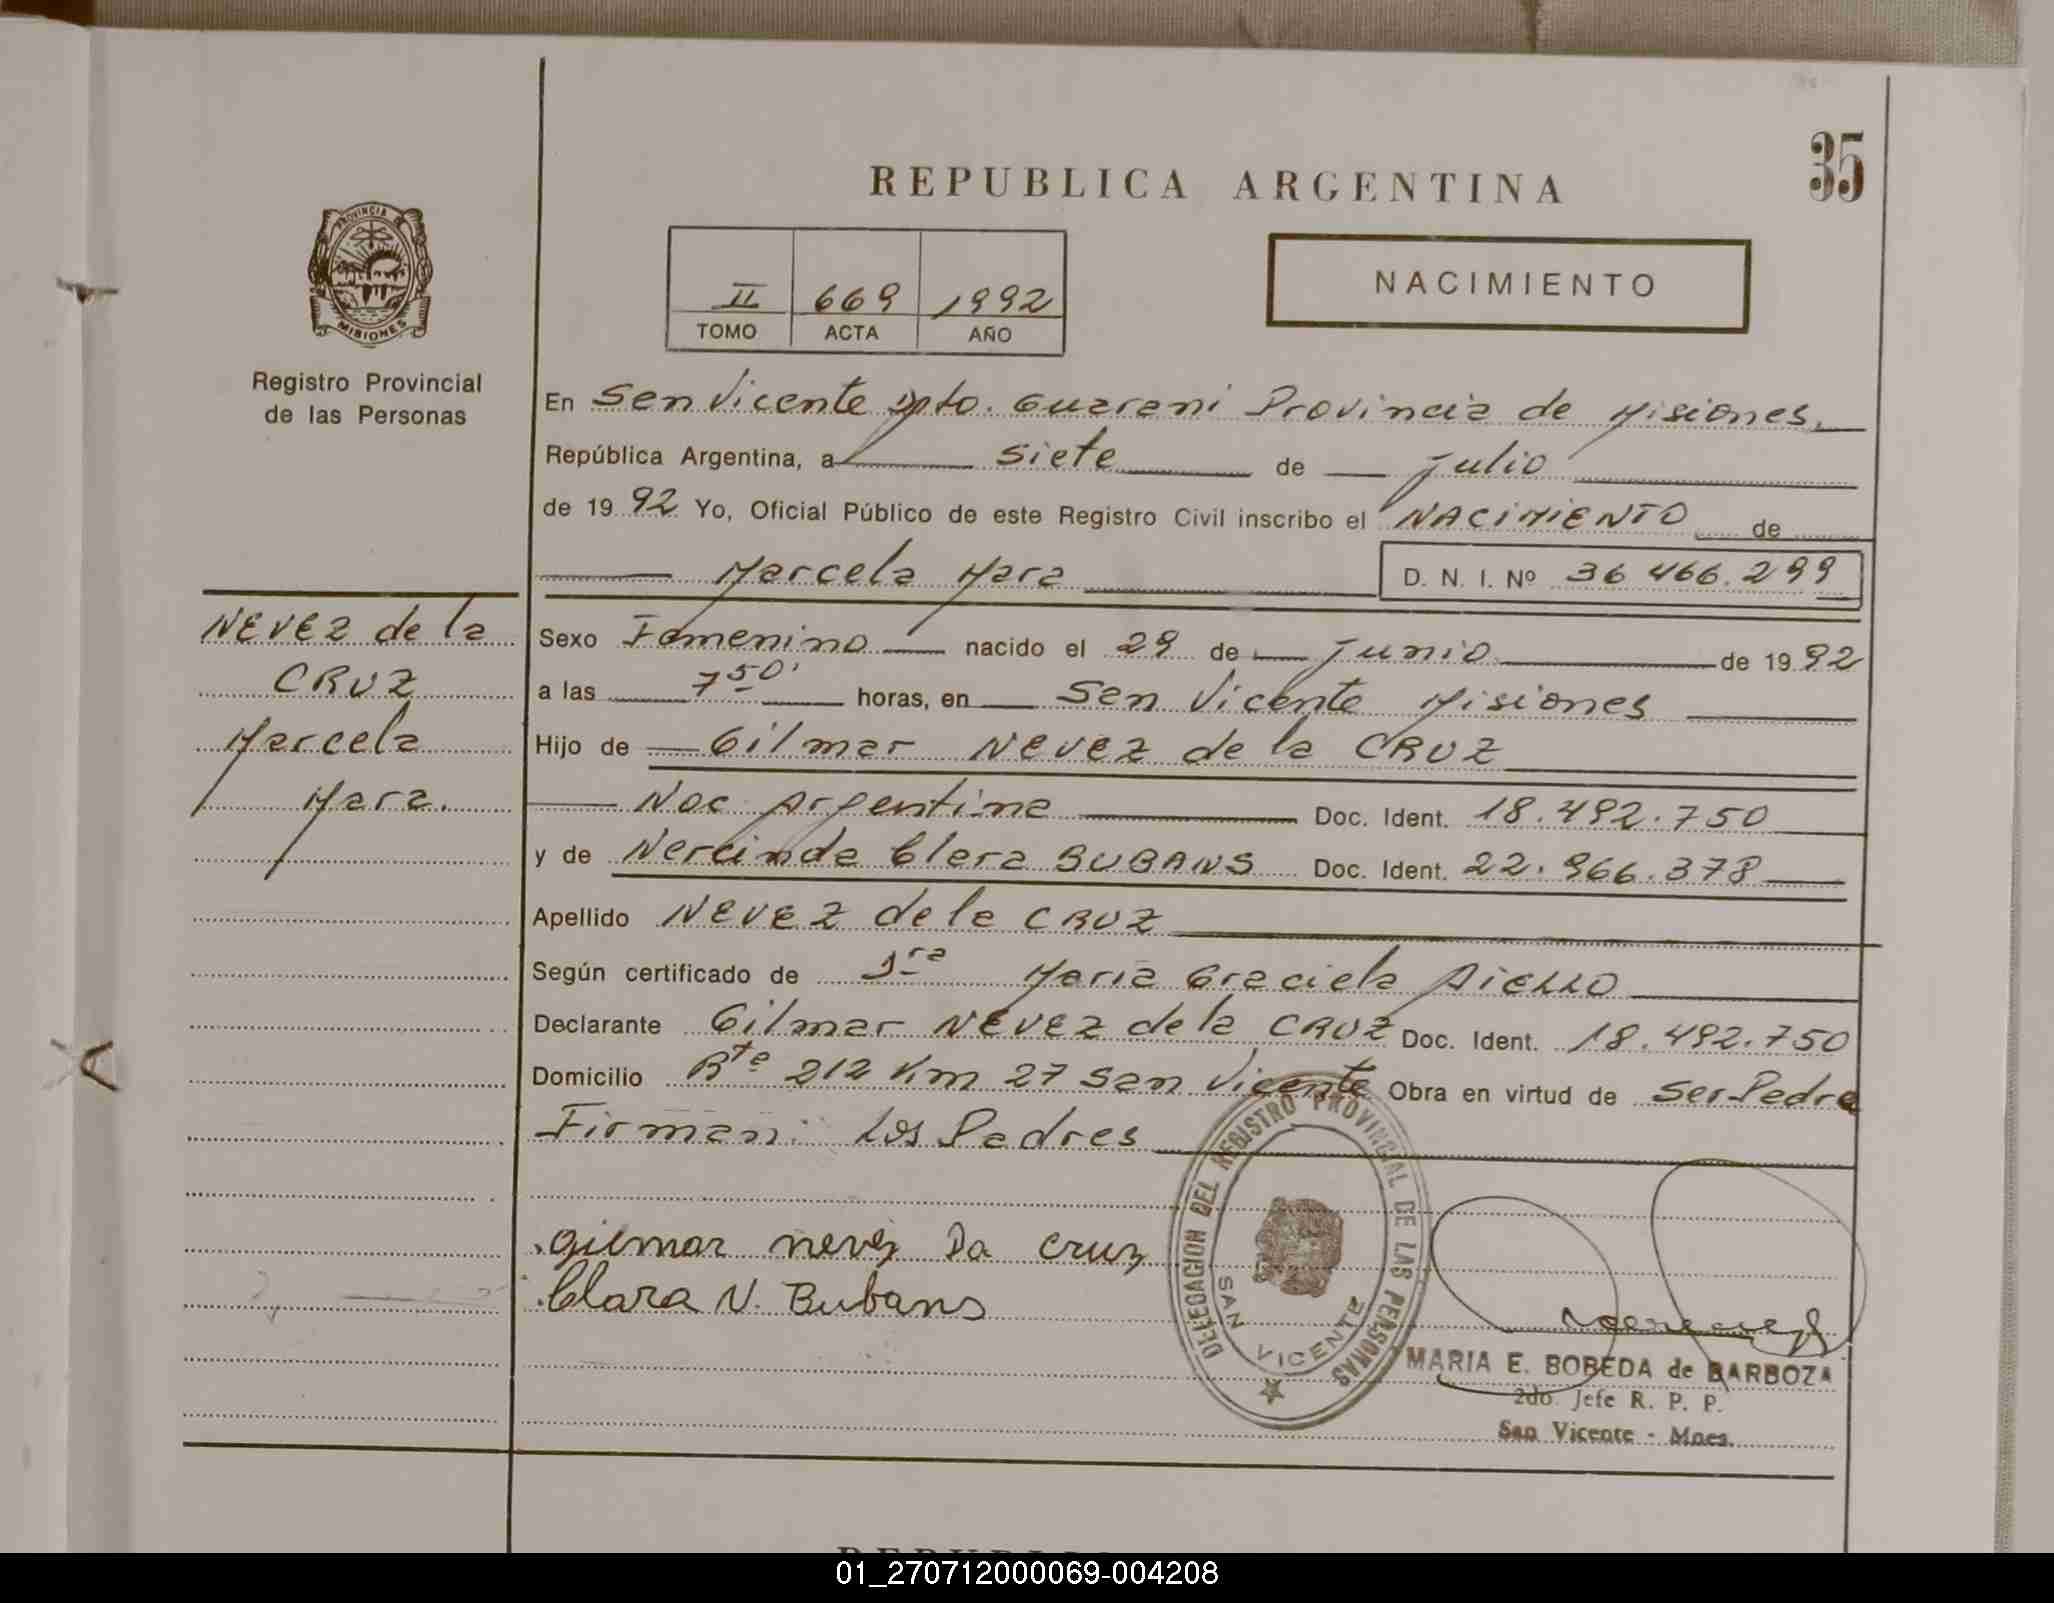 35
REPUBLICA ARGENTINA
PROVINCIA DE
MISIONES
Registro Provincial
de las Personas
II 669 1992
TOMO ACTA AÑO
NACIMIENTO
En San Vicente Dpto. Guarani Provincia de Misiones,
República Argentina, a siete de julio
de 1992 Yo, Oficial Público de este Registro Civil inscribo el NACIMIENTO de
Marcela Mara D. N. I. Nº 36 466.299
NEVEZ de la
CRUZ
Marcela
Mara.
Sexo Femenino nacido el 29 de junio de 1992
a las 7 50' horas, en San Vicente Misiones
Hijo de Gilmar NEVEZ de la CRUZ
Nac. Argentina Doc. Ident. 18.492.750
y de Nercinda Clara BUBANS Doc. Ident. 22.966.378
Apellido NEVEZ de la CRUZ
Según certificado de 1ra Maria Graciela AIELLO
Declarante Gilmar NEVEZ de la CRUZ Doc. Ident. 18.492.750
Domicilio Rta 212 Km 27 San Vicente Obra en virtud de Ser Padre
Firman: Los Padres
Gilmar nevez Da Cruz
Clara N. Bubans
DELEGACION DEL REGISTRO PROVINCIAL DE LAS PERSONAS
SAN VICENTE
MARIA E. BOBEDA de BARBOZA
2do. Jefe R. P. P.
San Vicente - Mnes.
01_270712000069-004208